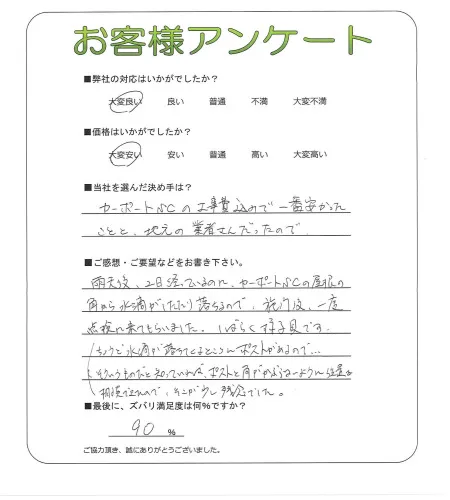 お客様アンケート
■弊社の対応はいかがでしたか?
大変良い 良い 普通 不満 大変不満
■価格はいかがでしたか?
大変安い 安い 普通 高い 大変高い
■当社を選んだ決め手は?
カーポートSCの工事費込みで一番安かった
ことと、地元の業者さんだったので。
■ご感想・ご要望などをお書き下さい。
雨天後、2日経っているのに、カーポートSCの屋根の
角から水滴がしたたり落ちるので、施行後、一度
点検に来てもらいました。しばらく様子見です。
(ちょうど水滴が落ちてくるところにポストがあるので…
そういうものだと知っていれば、ポストと角がかぶらないように位置を
相談できたので、そこが少し残念でした。
■最後に、ズバリ満足度は何%ですか?
90 %
ご協力頂き、誠にありがとうございました。